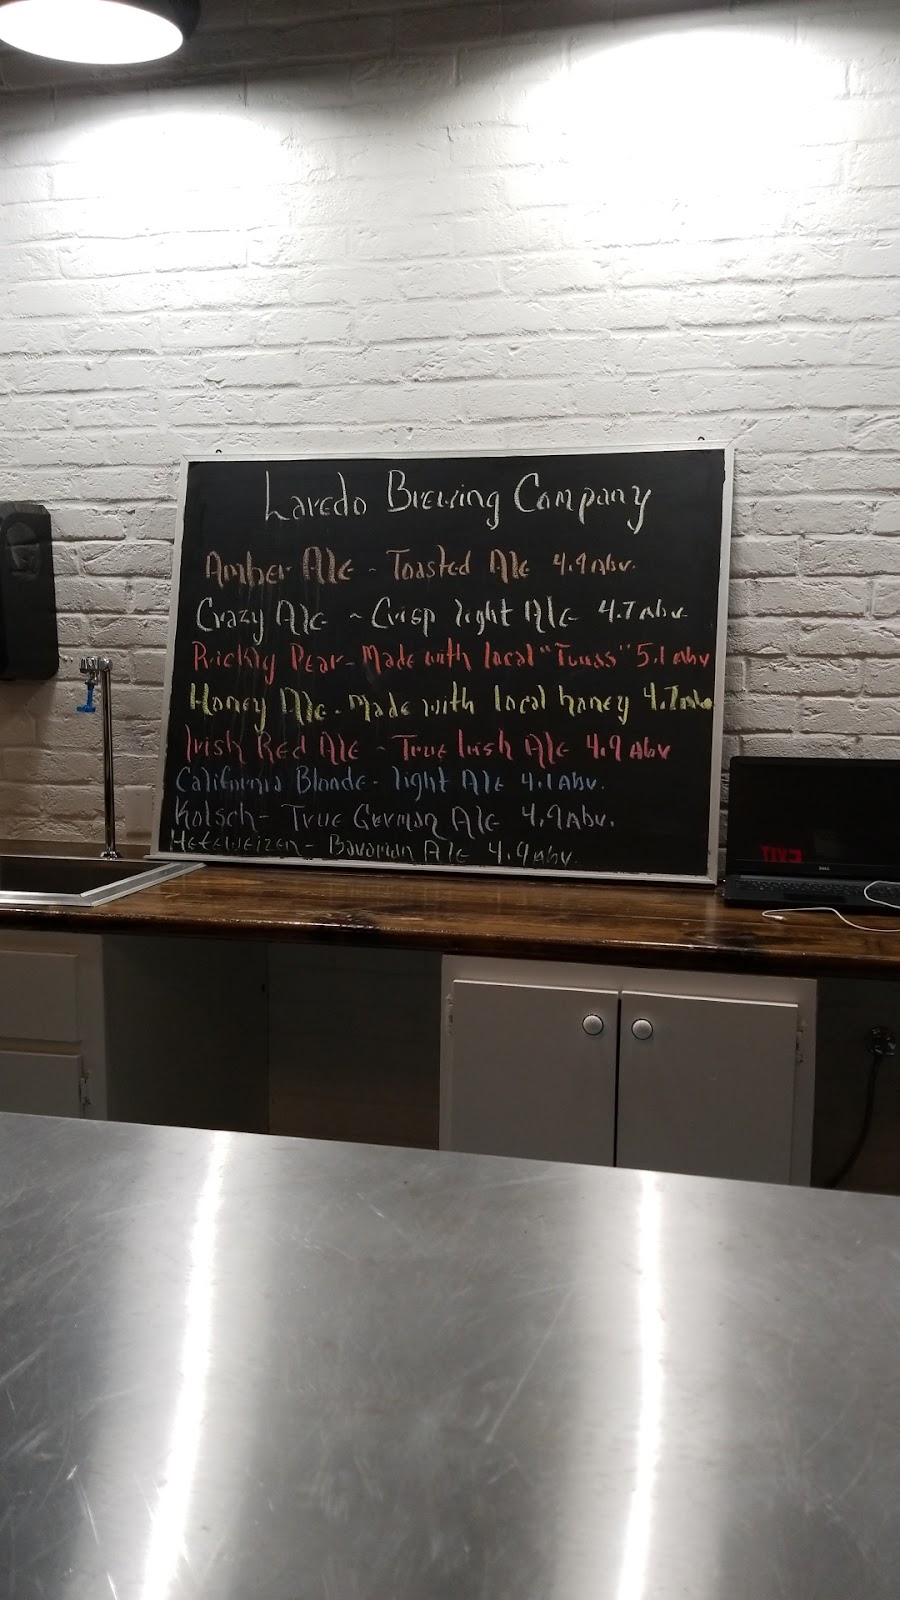 Laredo Brewing Company
Amber Ale ~ Toasted Ale 4.9 Abv.
Crazy Ale ~ Crisp light Ale 4.7 Abv
Prickly Pear - Made with local "Tunas" 5.1 Abv
Honey Ale - Made with local honey 4.7 Abv
Irish Red Ale ~ True Irish Ale 4.9 Abv
California Blonde - light Ale 4.1 Abv.
Kolsch - True German Ale 4.9 Abv.
Hefeweizen - Bavarian Ale 4.9 Abv.
DELL
EXIT